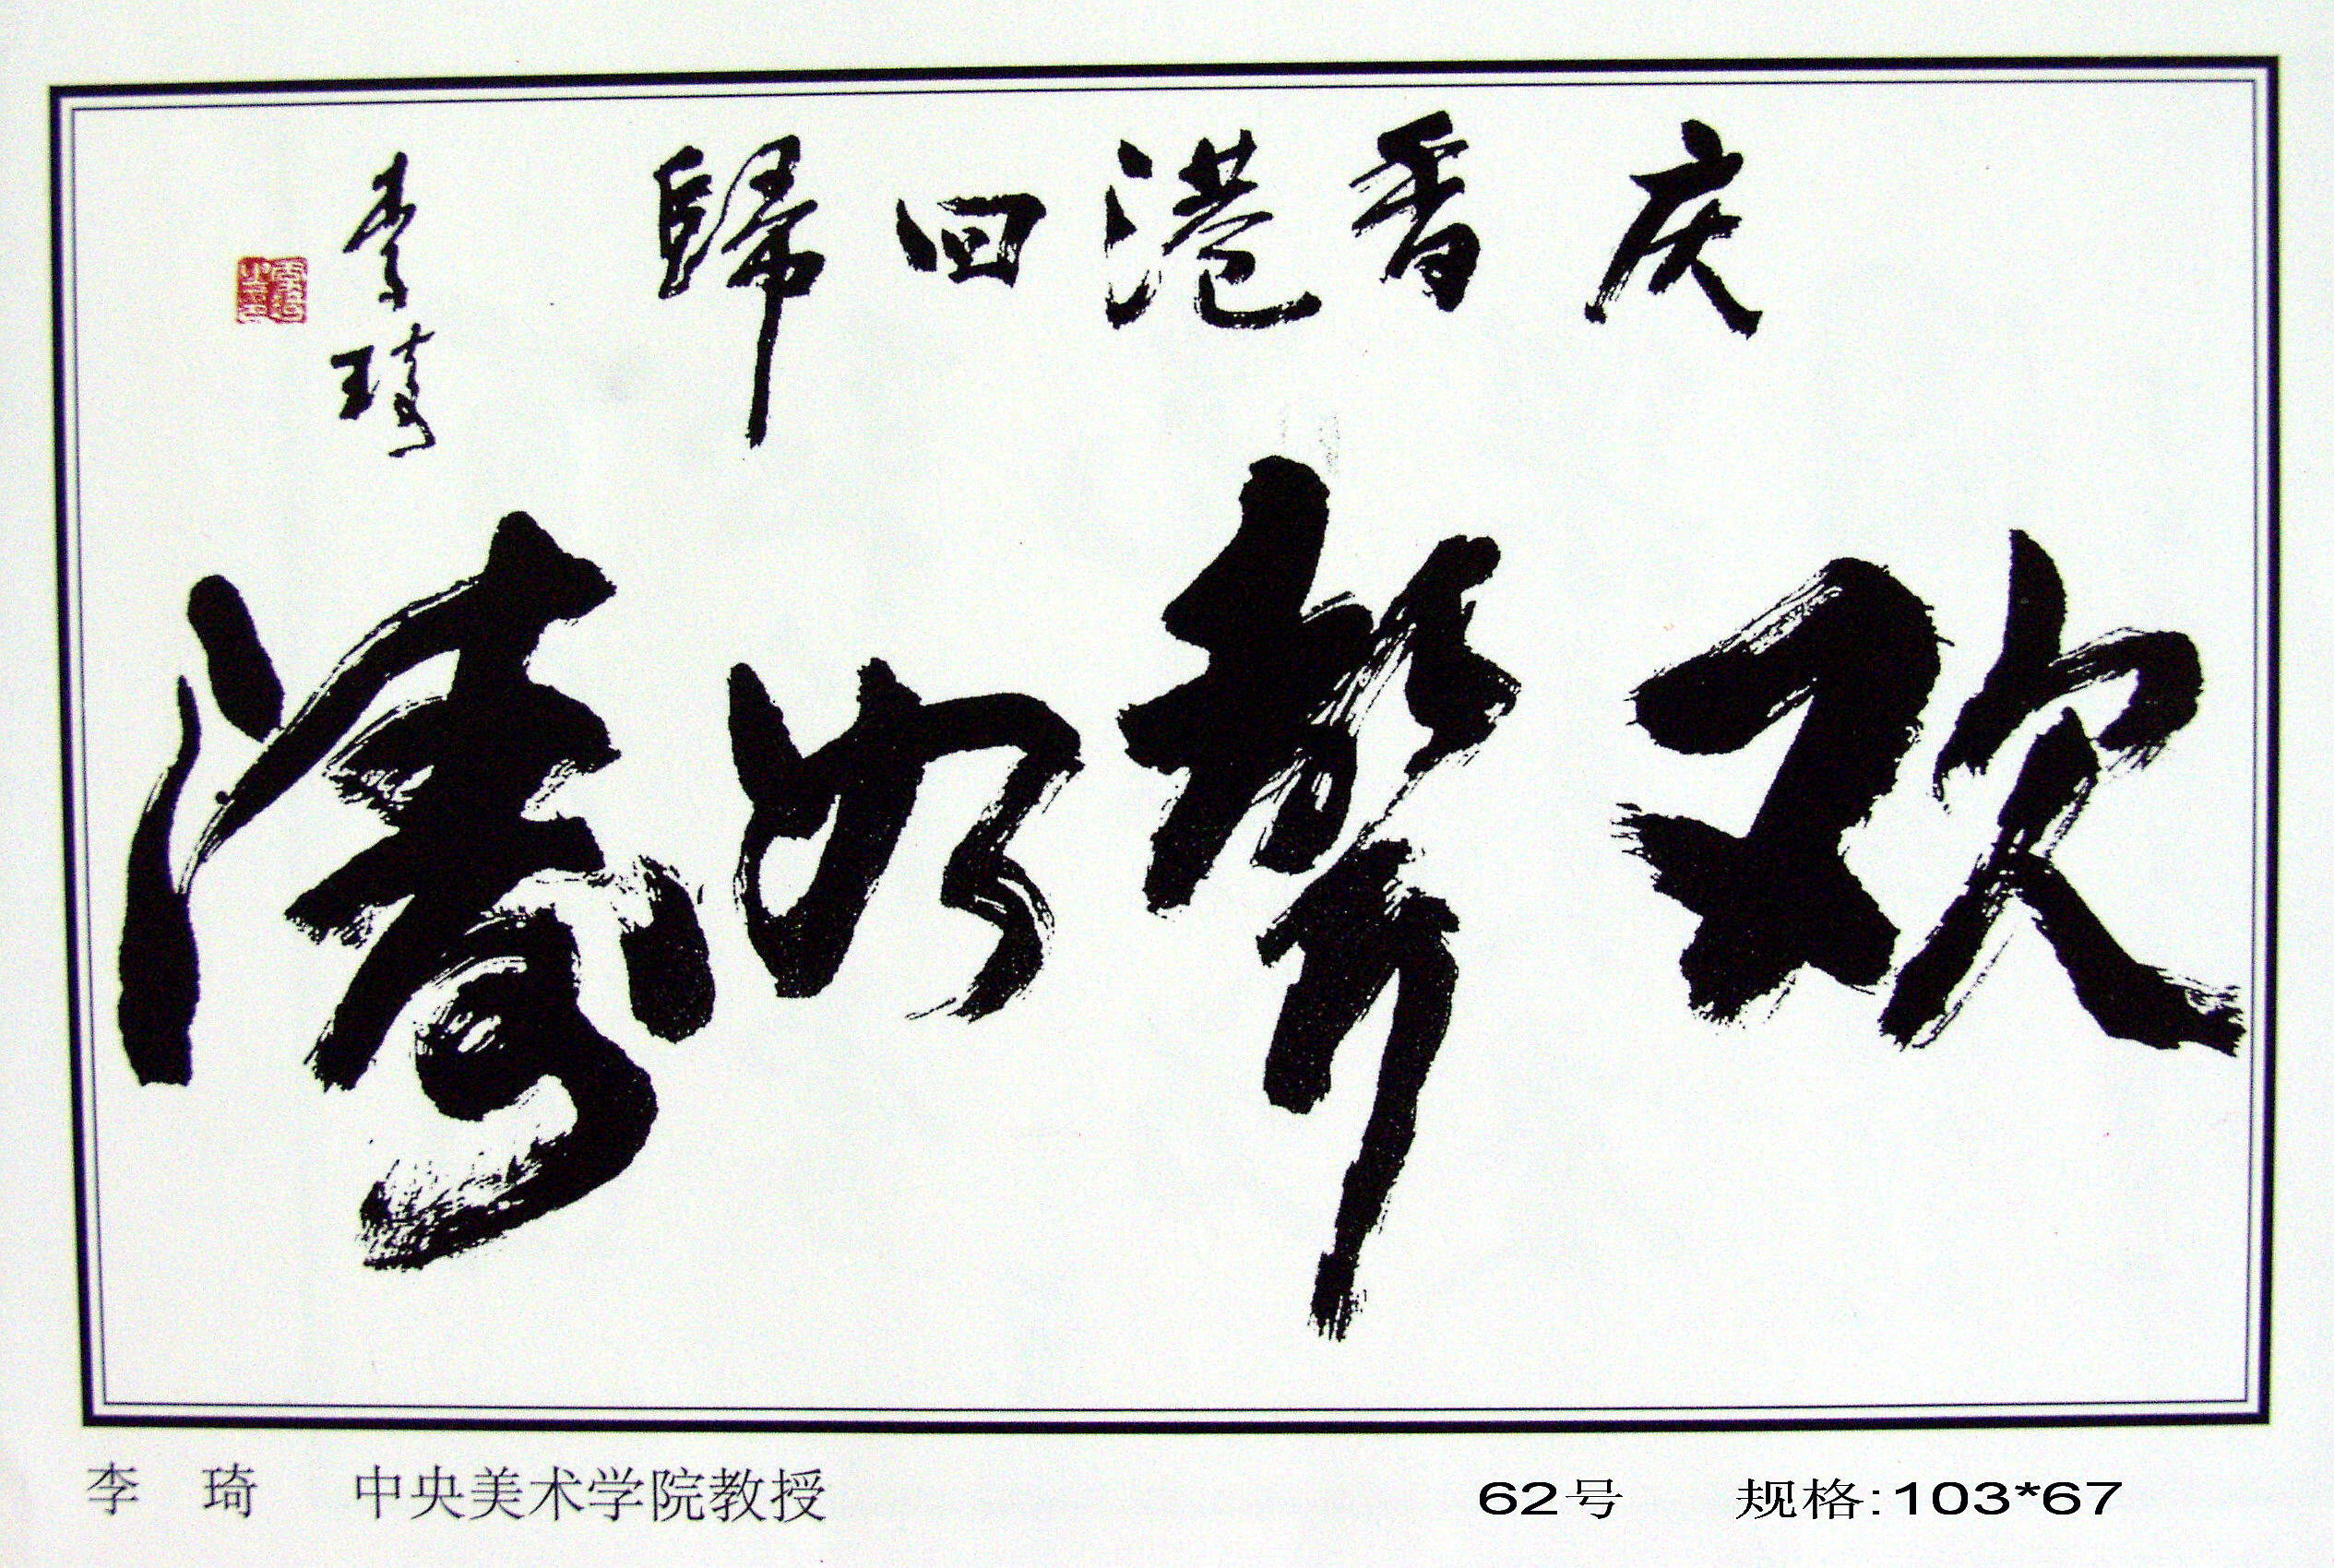 庆香港回歸
李琦
欢聲如濤
李 琦 中央美术学院教授
62号 规格:103*67